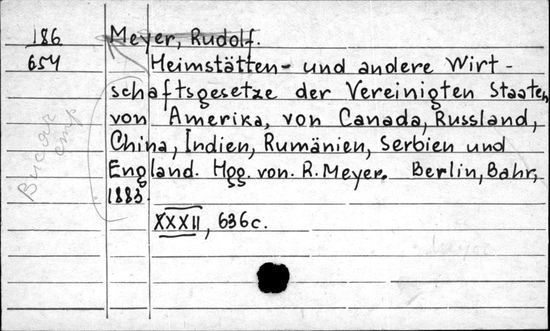 186
654
Meyer, Rudolf.
Heimstätten- und andere Wirt-
schaftsgesetze der Vereinigten Staaten
von Amerika, von Canada, Russland,
China, Indien, Rumänien, Serbien und
England. Hgg. von. R. Meyer. Berlin, Bahr,
1883.
XXXII, 636c.